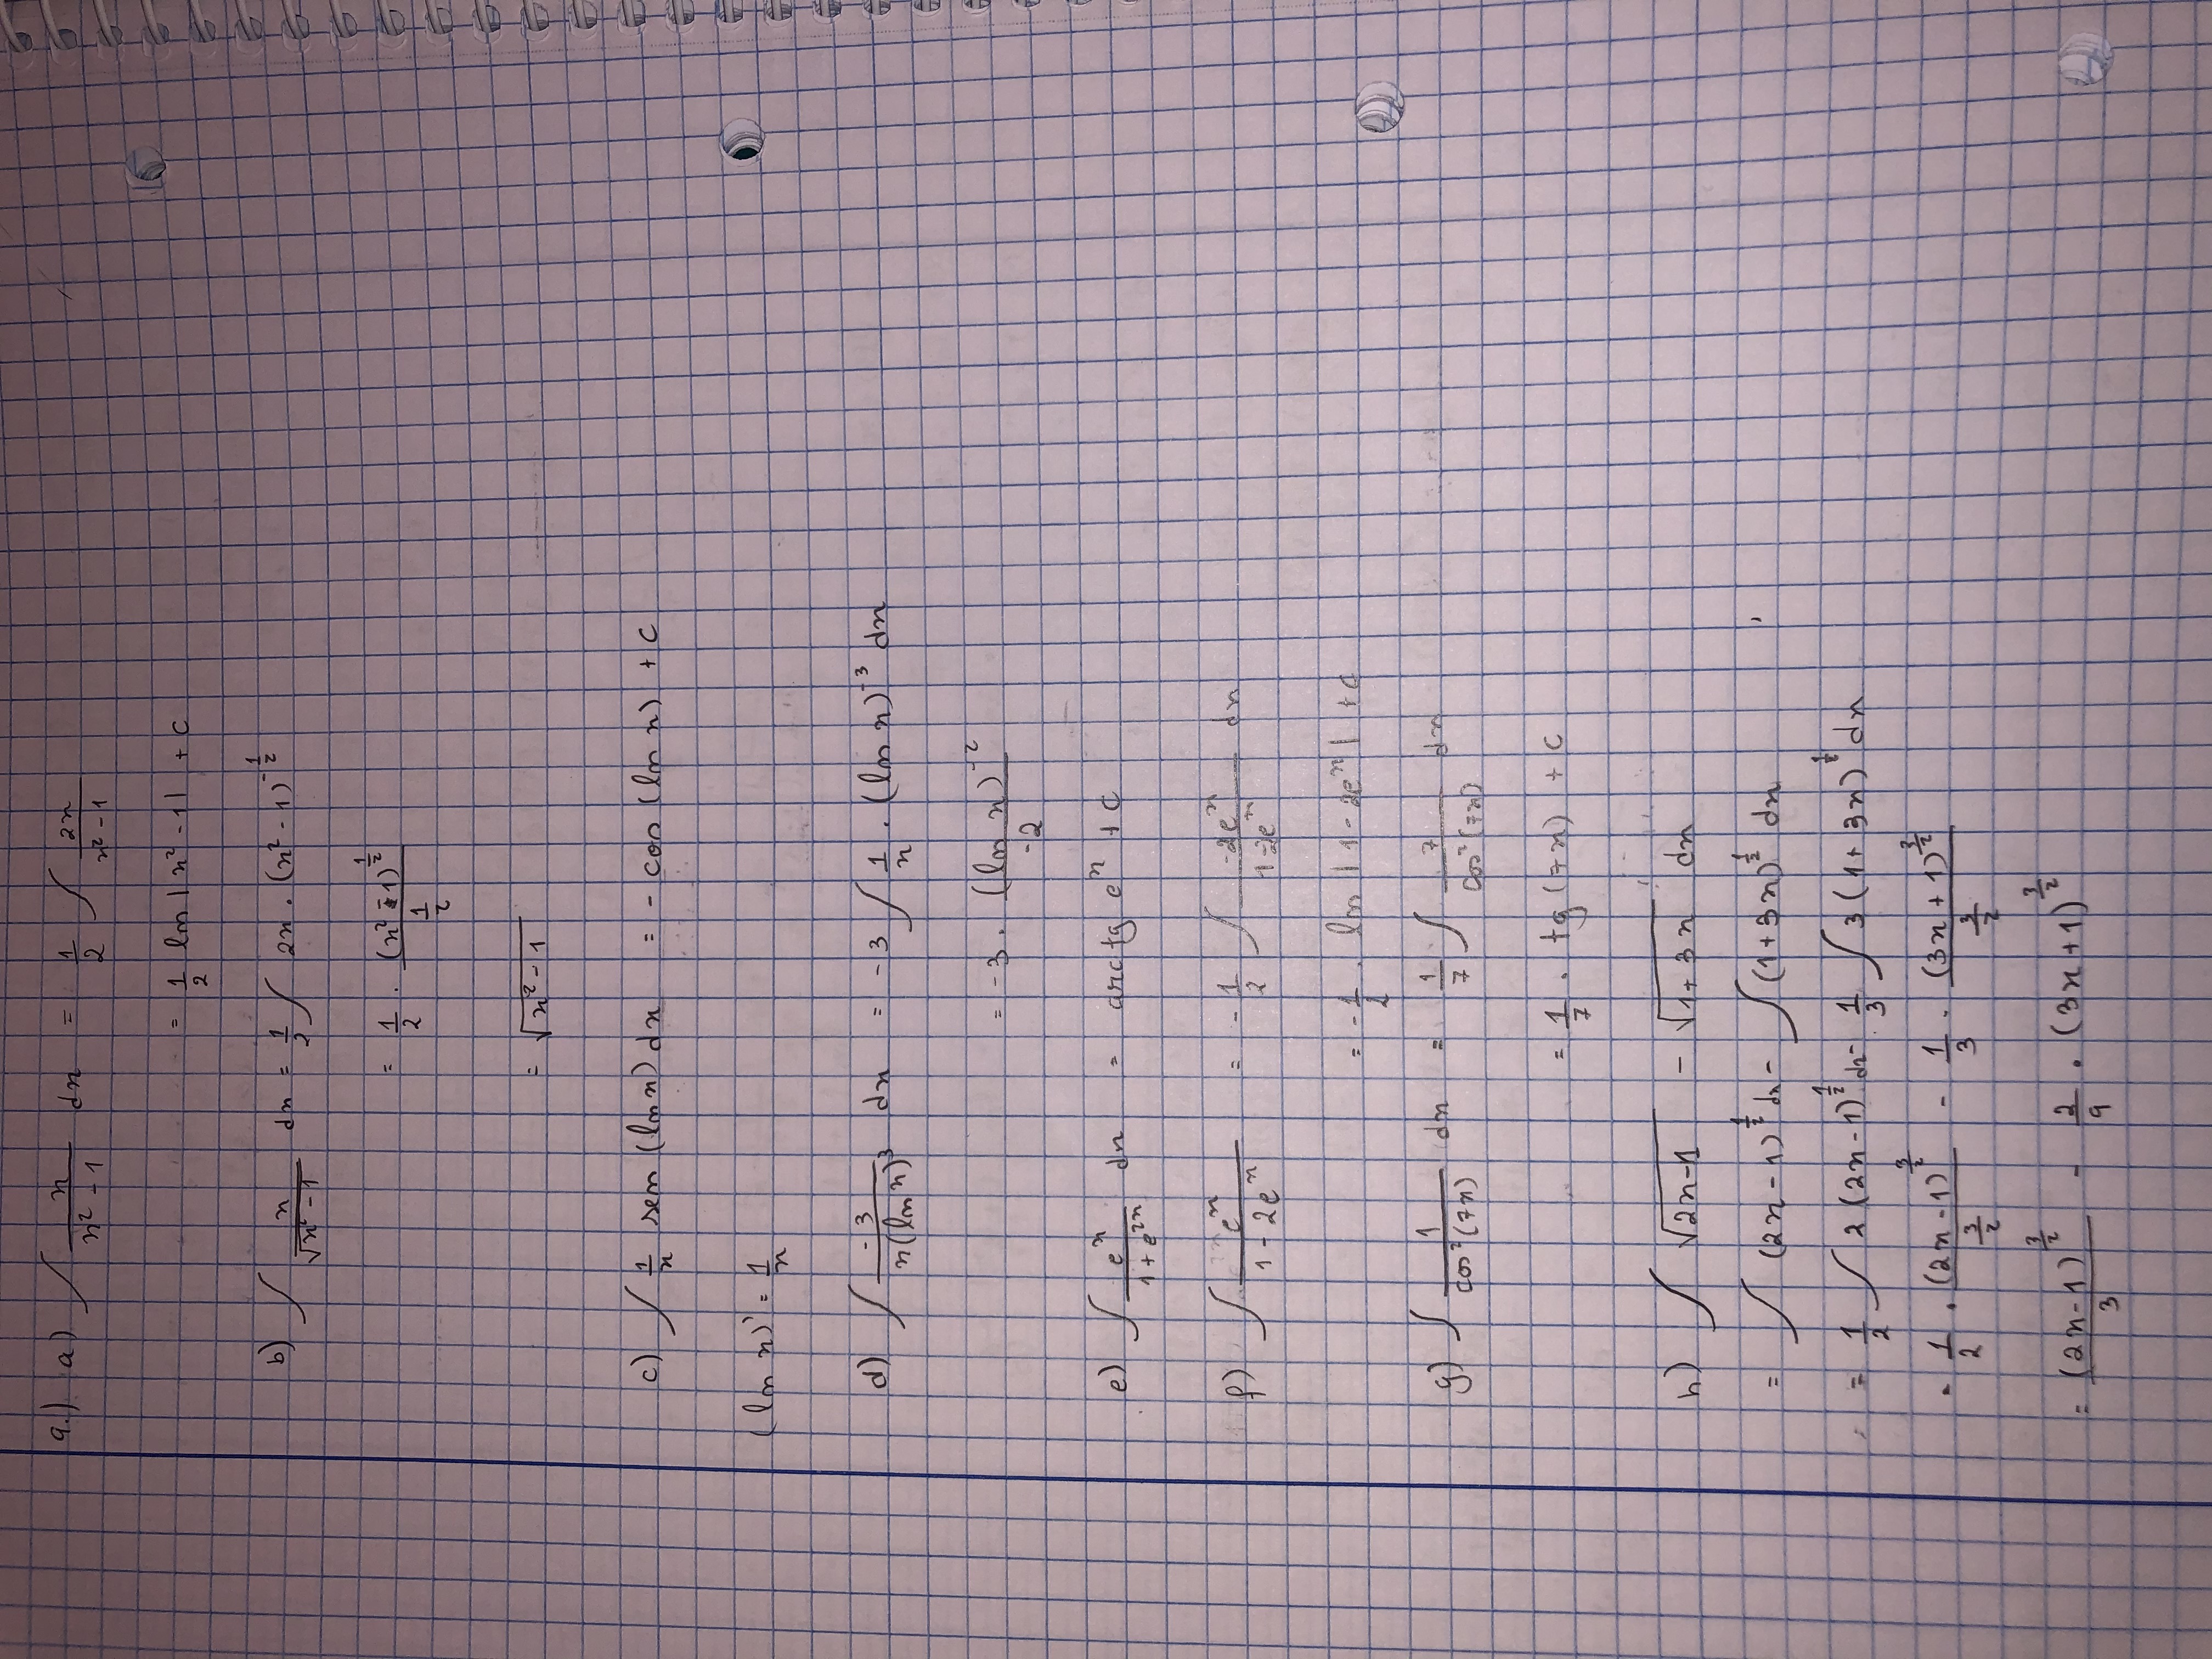 9.) a) ∫ x/(x² - 1) dx = 1/2 ∫ 2x/(x² - 1)
= 1/2 ln |x² - 1| + C
b) ∫ x/√(x² - 1) dx = 1/2 ∫ 2x · (x² - 1)^(-1/2)
= 1/2 · (x² - 1)^(1/2) / (1/2)
= √(x² - 1)
c) ∫ 1/x sen (ln x) dx = - cos (ln x) + C
(ln x)' = 1/x
d) ∫ -3/(x(ln x)³) dx = -3 ∫ 1/x · (ln x)^(-3) dx
= -3 · (ln x)^(-2) / -2
e) ∫ e^x/(1 + e^(2x)) dx = arctg e^x + C
f) ∫ e^x/(1 - 2e^x) = - 1/2 ∫ -2e^x/(1-2e^x) dx
= - 1/2 · ln |1 - 2e^x| + C
g) ∫ 1/cos²(7x) dx = 1/7 ∫ 7/cos²(7x) dx
= 1/7 · tg (7x) + C
h) ∫ √(2x-1) - √(1+3x) dx
= ∫ (2x-1)^(1/2) dx - ∫ (1+3x)^(1/2) dx
= 1/2 ∫ 2(2x-1)^(1/2) dx - 1/3 ∫ 3(1+3x)^(1/2) dx
= 1/2 · (2x-1)^(3/2) / (3/2) - 1/3 · (3x+1)^(3/2) / (3/2)
= (2x-1)^(3/2) / 3 - 2/9 · (3x+1)^(3/2)